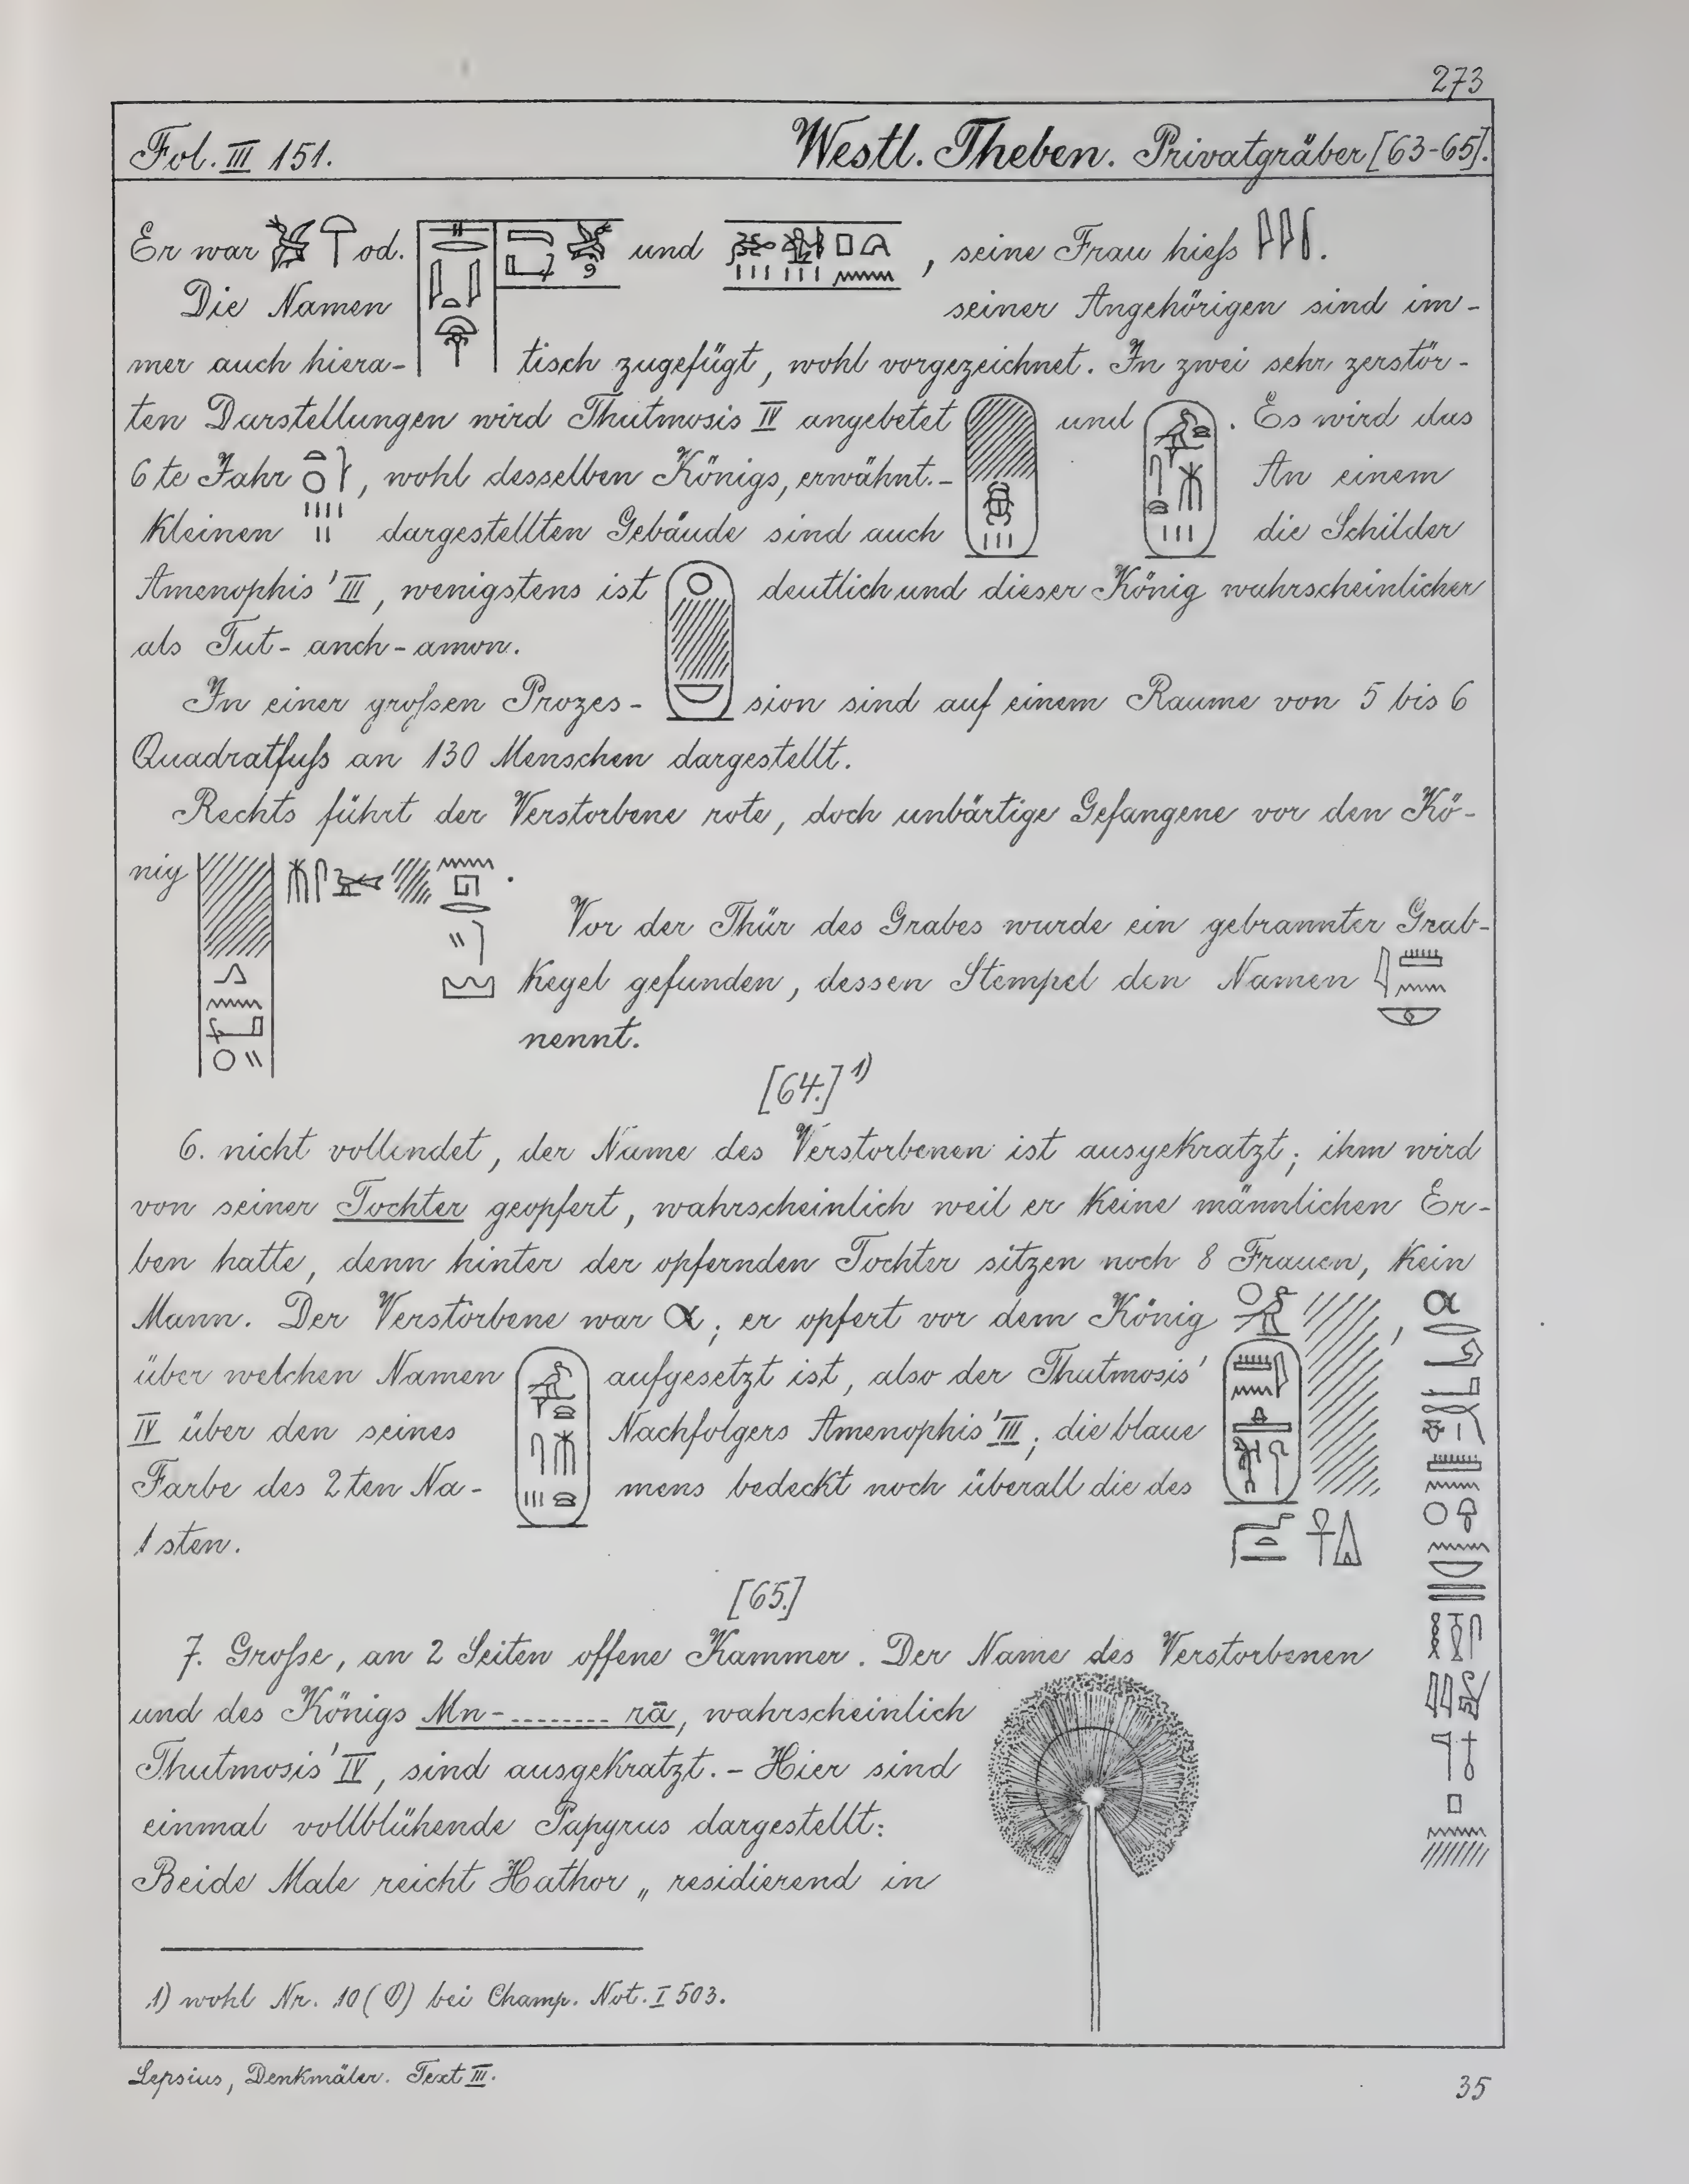 273
Fol. III 151. Westl. Theben. Privatgräber [63-65].
Er war od. und , seine Frau hieſs .
Die Namen seiner Angehörigen sind im-
mer auch hiera- tisch zugefügt, wohl vorgezeichnet. In zwei sehr zerstör-
ten Darstellungen wird Thutmosis IV angebetet und . Es wird das
6te Jahr , wohl desselben Königs, erwähnt. - An einem
kleinen dargestellten Gebäude sind auch die Schilder
Amenophis' III, wenigstens ist deutlich und dieser König wahrscheinlicher
als Tut-anch-amon.
In einer groſsen Prozes- sion sind auf einem Raume von 5 bis 6
Quadratfuſs an 130 Menschen dargestellt.
Rechts führt der Verstorbene rote, doch unbärtige Gefangene vor den Kö-
nig .
Vor der Thür des Grabes wurde ein gebrannter Grab-
kegel gefunden, dessen Stempel den Namen
nennt.
[64.] 1)
6. nicht vollendet, der Name des Verstorbenen ist ausgekratzt; ihm wird
von seiner Tochter geopfert, wahrscheinlich weil er keine männlichen Er-
ben hatte, denn hinter der opfernden Tochter sitzen noch 8 Frauen, kein
Mann. Der Verstorbene war α; er opfert vor dem König , α
über welchen Namen aufgesetzt ist, also der Thutmosis'
IV über den seines Nachfolgers Amenophis' III; die blaue
Farbe des 2ten Na- mens bedeckt noch überall die des
1sten.
[65.]
7. Groſse, an 2 Seiten offene Kammer. Der Name des Verstorbenen
und des Königs Mn-........ rā, wahrscheinlich
Thutmosis' IV, sind ausgekratzt. - Hier sind
einmal vollblühende Papyrus dargestellt:
Beide Male reicht Hathor „ residierend in
1) wohl Nr. 10 (O) bei Champ. Not. I 503.
Lepsius, Denkmäler. Text III. 35